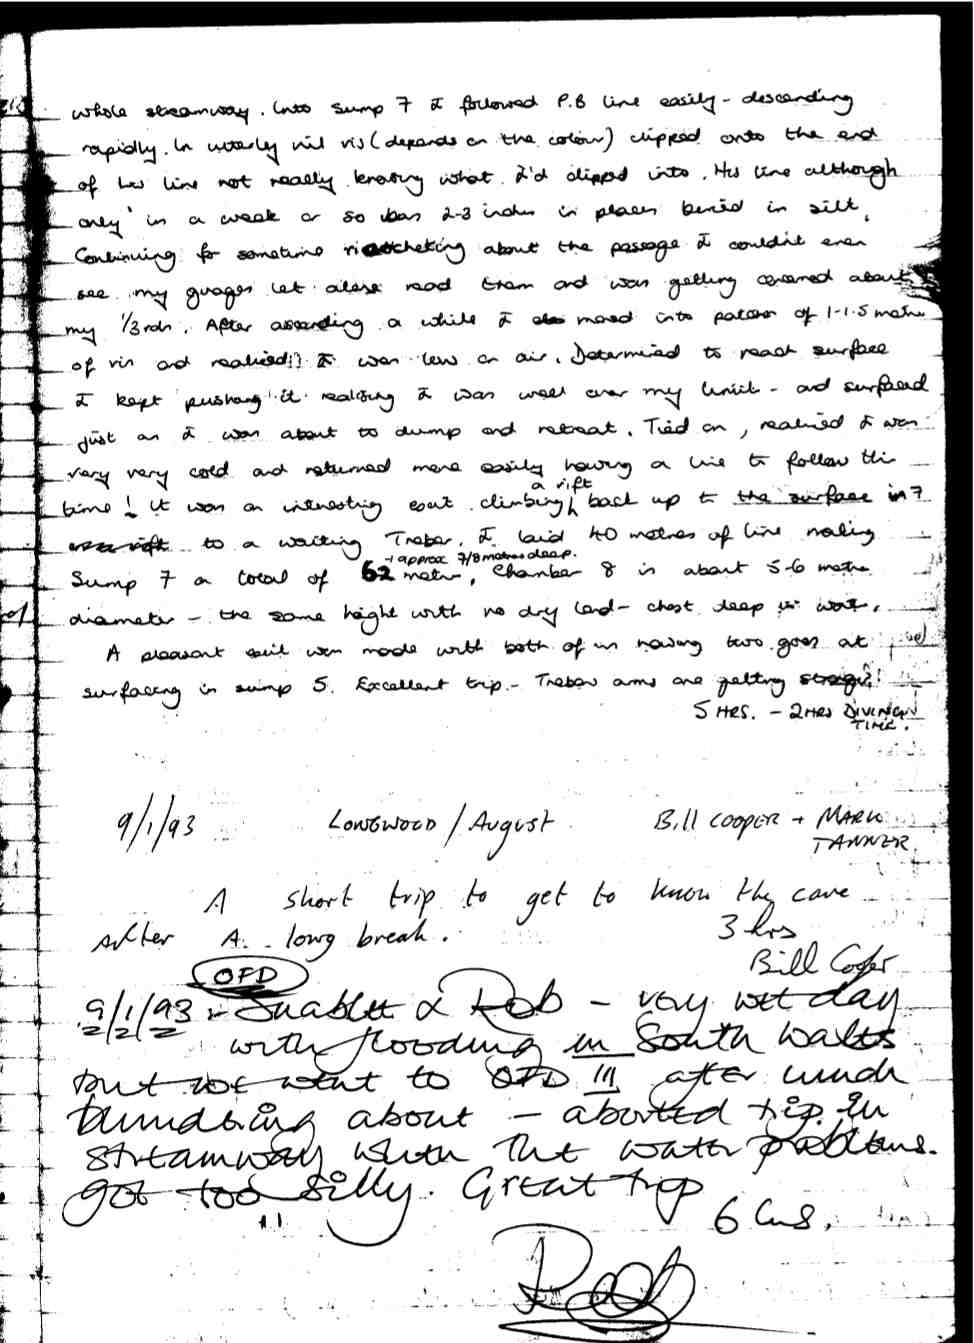 whole streamway. Into Sump 7 I followed P.B line easily - descending
rapidly. In utterly nil vis (depends on the colour) clipped onto the end
of his line not really knowing what I'd clipped into. His line although
only in a week or so was 2-3 inches in places buried in silt.
Continuing for sometime ricocheting about the passage I couldn't even
see my guages let alone read them and was getting concerned about
my 1/3rds. After ascending a while I moved into patches of 1-1.5 metre
of vis and realised!! I was low on air. Determined to reach surface
I kept 'pushing' it realising I was well over my limit - and surfaced
just as I was about to dump and retreat. Tied on, realised I was
very very cold and returned more easily having a line to follow this
time! It was an interesting exit climbing a rift back up to the surface in 7
to a waiting Trebor. I laid 40 metres of line making
Sump 7 a total of 62 metres, - approx 7/8 metres deep. Chamber 8 is about 5-6 metre
diameter - the same height with no dry land - chest deep in water.
A pleasant exit was made with both of us having two goes at
surfacing in sump 5. Excellent trip - Trebors arms are getting stronger!
5 HRS. - 2 HRS DIVING
TIME.
9/1/93 LONGWOOD / August Bill COOPER + MARK
TANNER
A short trip to get to know the cave
After A long break. 3 hrs
Bill Cooper
OFD
9/1/93 :- & Rob - very wet day
with flooding in South Wales
but we went to OFD III after much
about - aborted trip in
streamway when the water problems
got too silly. Great trip
6 hrs.
Rob